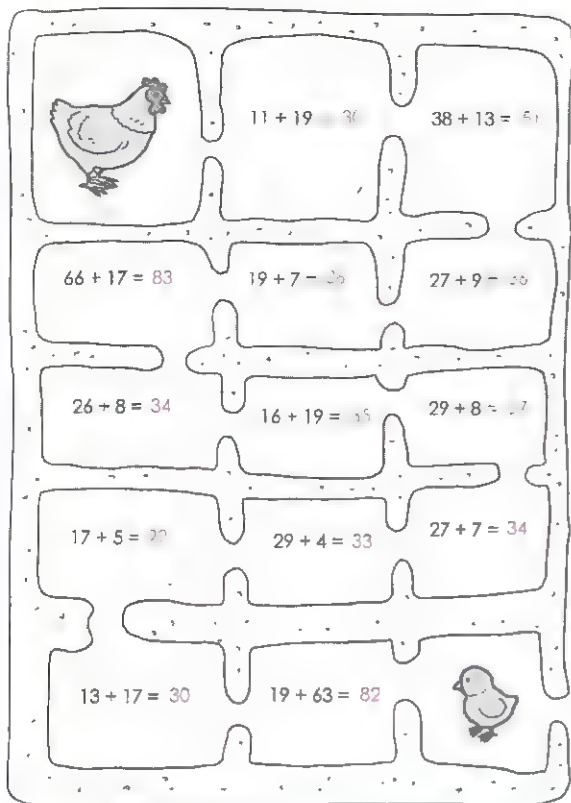 11 + 19 = 30
38 + 13 = 51
66 + 17 = 83
19 + 7 =
27 + 9 = 36
26 + 8 = 34
16 + 19 = 35
29 + 8 =
17 + 5 = 22
29 + 4 = 33
27 + 7 = 34
13 + 17 = 30
19 + 63 = 82